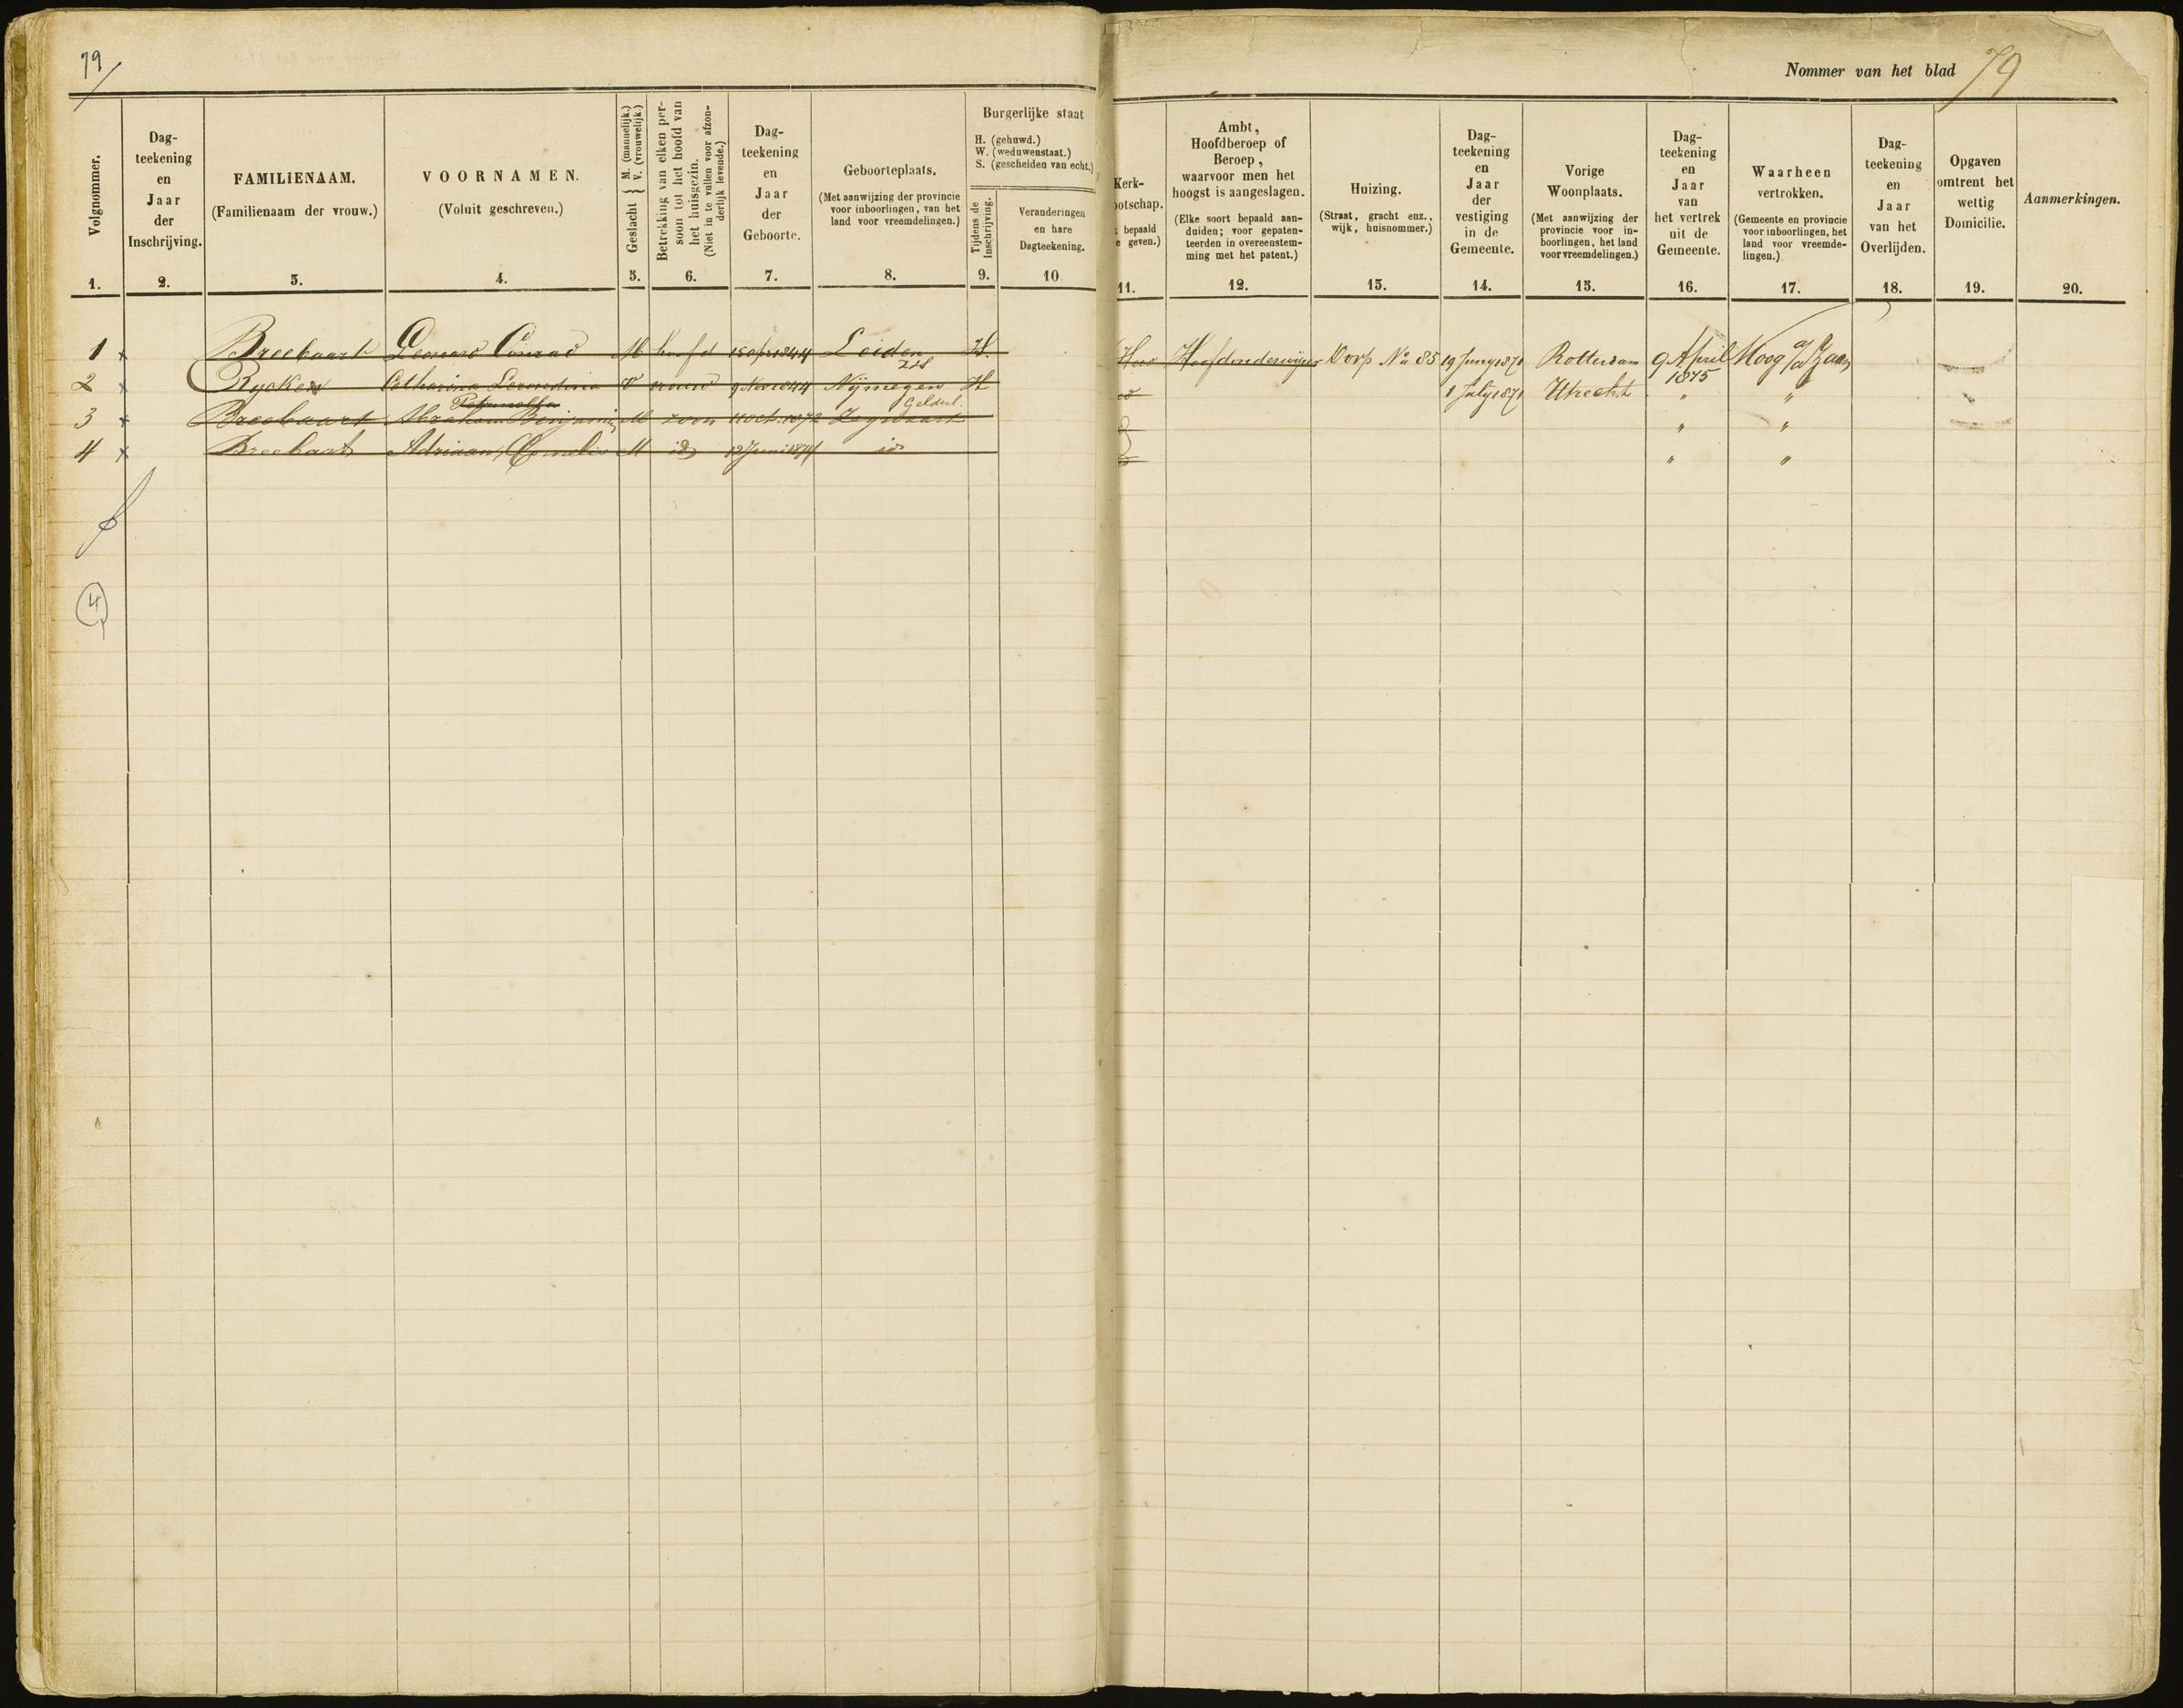 79
Nommer van het blad 79
Volgnommer.
1.
Dag-
teekening
en
Jaar
der
Inschrijving.
2.
FAMILIENAAM.
(Familienaam der vrouw.)
3.
VOORNAMEN.
(Voluit geschreven.)
4.
Geslacht { M. (mannelijk.)
V. (vrouwelijk.)
5.
Betrekking van elken per-
soon tot het hoofd van
het huisgezin.
(Niet in te vullen voor afzon-
derlijk levende.)
6.
Dag-
teekening
en
Jaar
der
Geboorte.
7.
Geboorteplaats.
(Met aanwijzing der provincie
voor inboorlingen, van het
land voor vreemdelingen.)
8.
Burgerlijke staat
H. (gehuwd.)
W. (weduwenstaat.)
S. (gescheiden van echt.)
Tijdens de
Inschrijving.
9.
Veranderingen
en hare
Dagteekening.
10
Kerk-
ootschap.
bepaald
e geven.)
11.
Ambt,
Hoofdberoep of
Beroep,
waarvoor men het
hoogst is aangeslagen.
(Elke soort bepaald aan-
duiden; voor gepaten-
teerden in overeenstem-
ming met het patent.)
12.
Huizing.
(Straat, gracht enz.,
wijk, huisnommer.)
13.
Dag-
teekening
en
Jaar
der
vestiging
in de
Gemeente.
14.
Vorige
Woonplaats.
(Met aanwijzing der
provincie voor in-
boorlingen, het land
voor vreemdelingen.)
15.
Dag-
teekening
en
Jaar
van
het vertrek
uit de
Gemeente.
16.
Waarheen
vertrokken.
(Gemeente en provincie
voor inboorlingen, het
land voor vreemde-
lingen.)
17.
Dag-
teekening
en
Jaar
van het
Overlijden.
18.
Opgaven
omtrent het
wettig
Domicilie.
19.
Aanmerkingen.
20.
1 x Breebaart Leonard Conrad M hoofd 15 apr 1844 Leiden ZH H. Hoofdonderwijzer Dorp No 85 19 Juny 1871 Rotterdam 9 April 1875 Koog a/d Zaan
2 x Ryckers Catharina Petronella V vrouw 9 Nov 1844 Nijmegen Gelderl. H 1 July 1871 Utrecht " "
3 x Breebaart Abraham Benjamin M zoon 11 Oct. 1872 Zegwaart " "
4 x Breebaart Adriaan Cornelis M id 12 Juni 1874 id " "
4